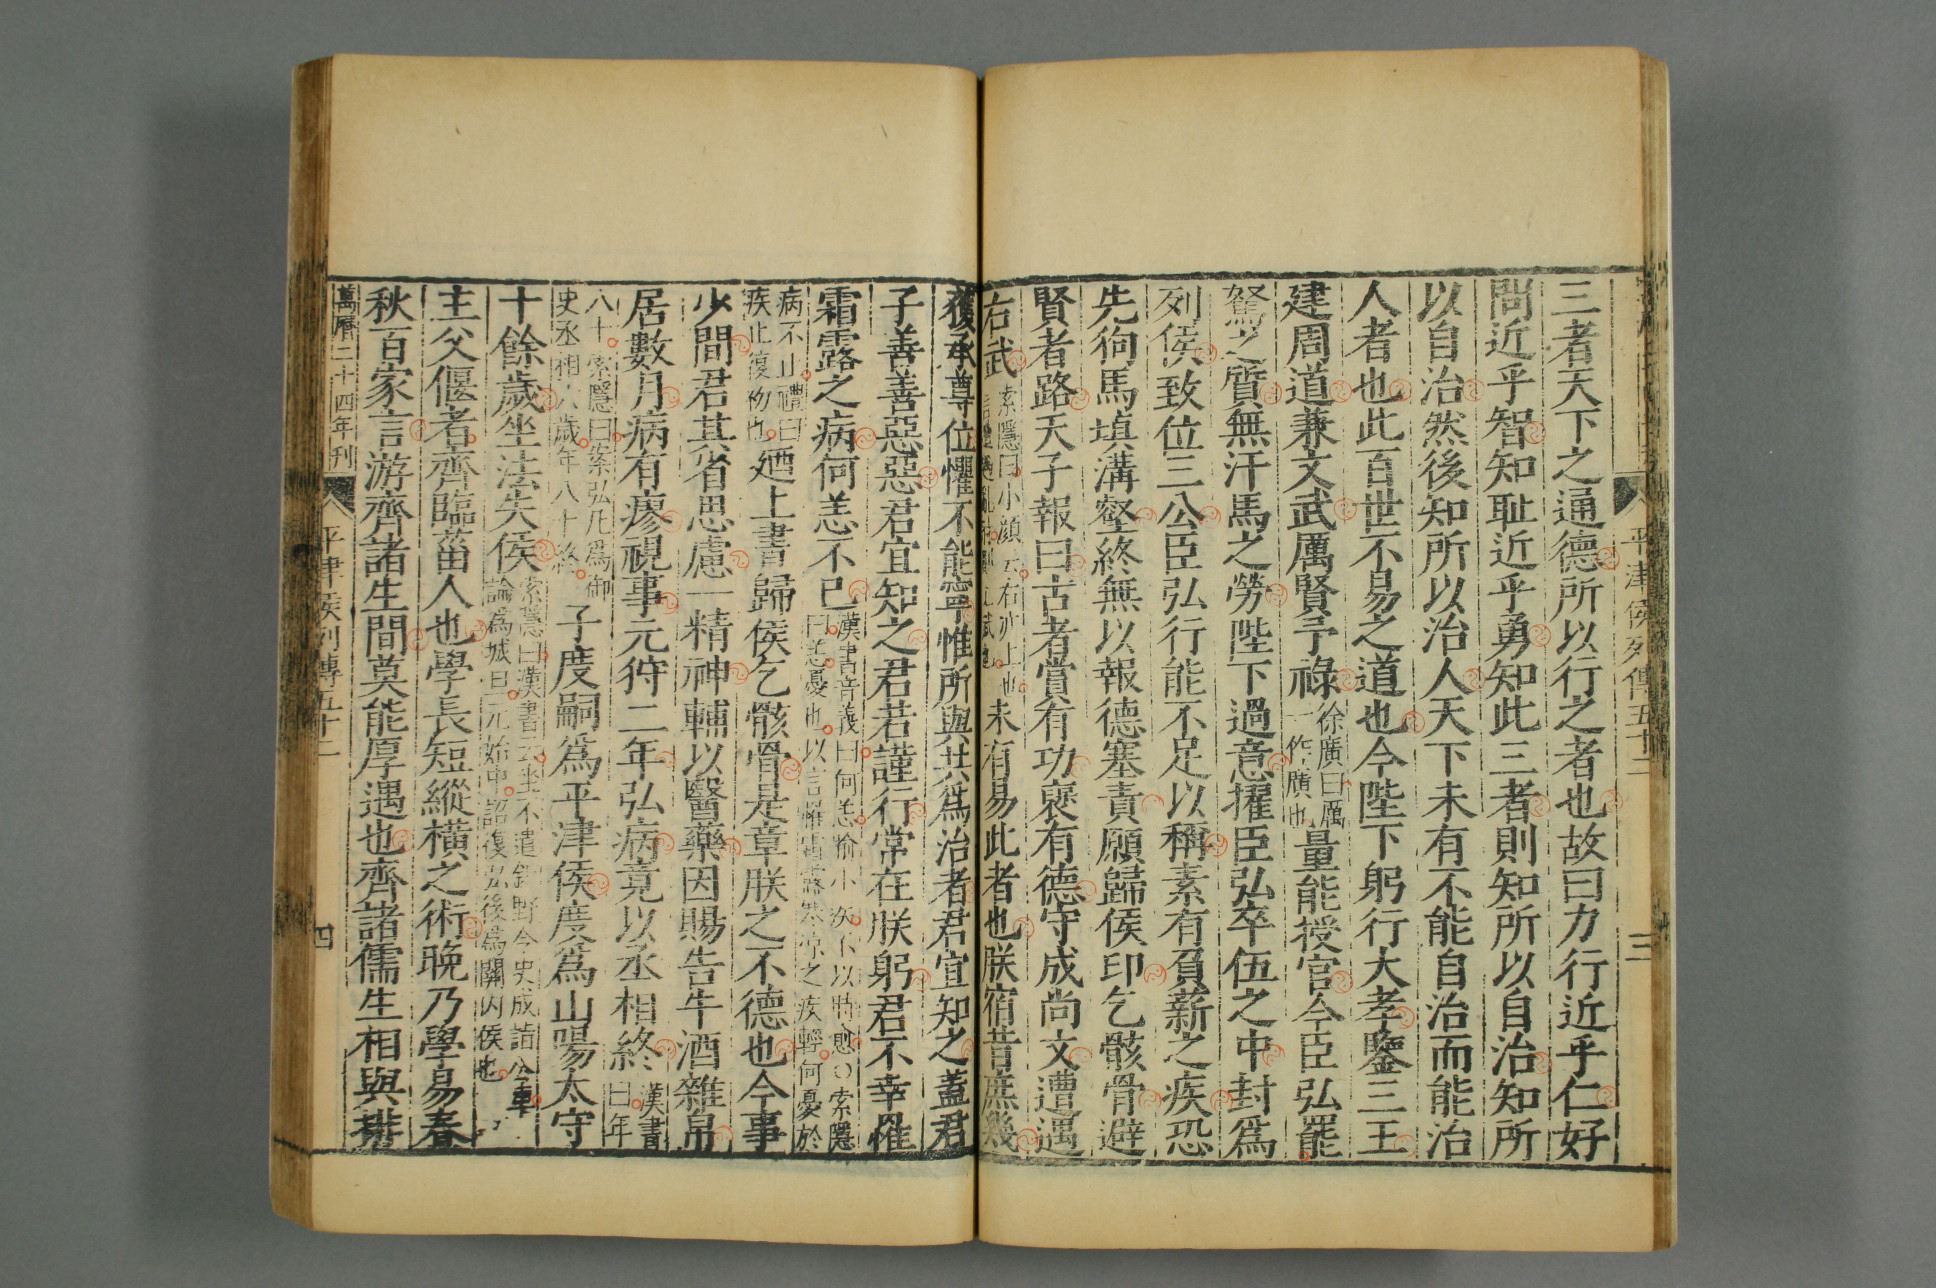 平津侯列傳五十二
三
三者天下之通德所以行之者也故曰力行近乎仁好
問近乎智知恥近乎勇知此三者則知所以自治知所
以自治然後知所以治人天下未有不能自治而能治
人者也此百世不易之道也今陛下躬行大孝鑒三王
建周道兼文武厲賢予祿徐廣曰厲一作廣也量能授官今臣弘罷
駑之質無汗馬之勞陛下過意擢臣弘卒伍之中封爲
列侯致位三公臣弘行能不足以稱素有負薪之疾恐
先狗馬塡溝壑終無以報德塞責願歸侯印乞骸骨避
賢者路天子報曰古者賞有功襃有德守成尚文遭遇
右武索隱曰小顏云右亦上也未有易此者也朕宿昔庶幾
獲承尊位懼不能寧惟所與共爲治者君宜知之蓋君
子善善惡惡君宜知之君若謹行常在朕躬君不幸罹
霜露之病何恙不已漢書音義曰何恙喻小疾不以時愈○索隱曰恙憂也以言罹霜露寒涼之疾輕何憂於
病不止禮曰疾止復初也廼上書歸侯乞骸骨是章朕之不德也今事
少間君其省思慮一精神輔以醫藥因賜告牛酒雜帛
居數月病有瘳視事元狩二年弘病竟以丞相終漢書曰年
八十索隱曰案弘凡爲御史丞相六歲年八十終子度嗣爲平津侯度爲山陽太守
十餘歲坐法失侯索隱曰漢書云坐不遣鉅野令史成詣公車論爲城旦元始中詔復弘後爲關內侯也
主父偃者齊臨菑人也學長短縱橫之術晚乃學易春
秋百家言游齊諸生間莫能厚遇也齊諸儒生相與排
萬曆二十四年刊
平津侯列傳五十二
四